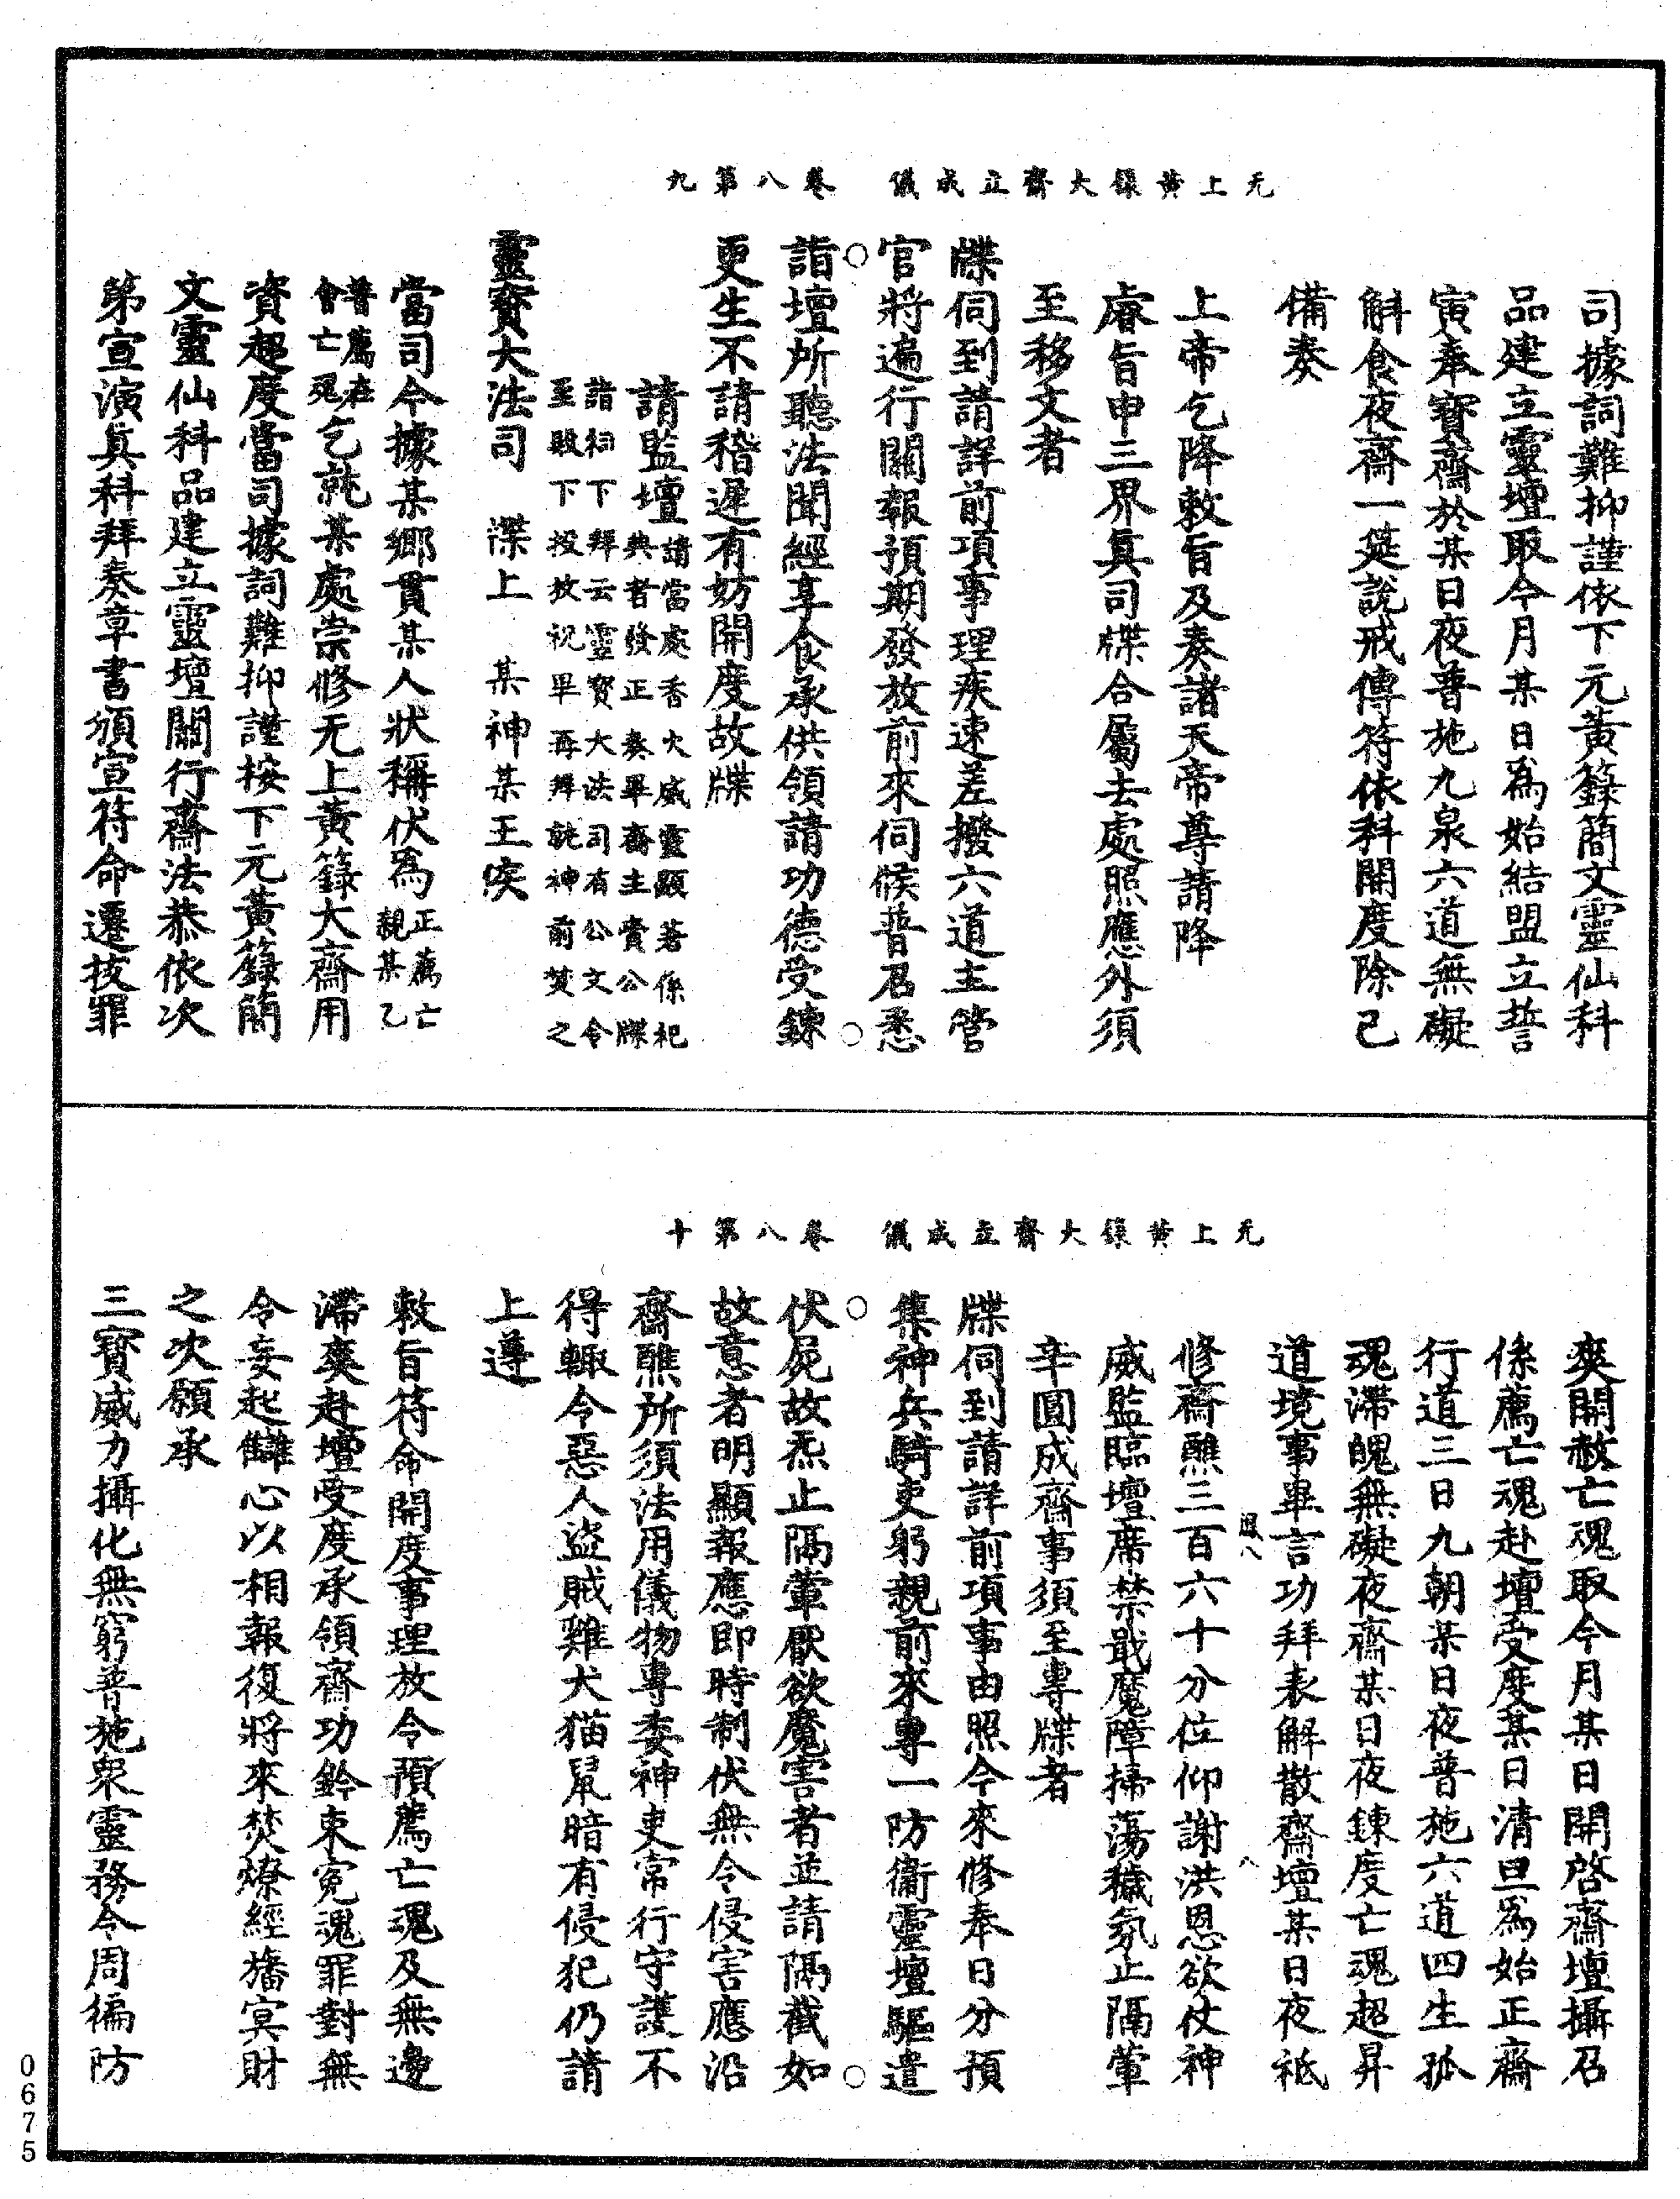 无上黃籙大齋立成儀　卷八第九
司據詞難抑謹依下元黃籙簡文靈仙科
品建立靈壇取今月某日爲始結盟立誓
寅奉寶齋於某日夜普施九泉六道無礙
斛食夜齋一筵說戒傳符依科開度除已
備奏
上帝乞降敕旨及奏諸天帝尊請降
睿旨申三界眞司牒合屬去處照應外須
至移文者
牒伺到請詳前項事理疾速差撥六道主管
官將遍行關報預期發放前來伺候普召悉
詣壇所聽法聞經享食承供領請功德受鍊
更生不請稽遲有妨開度故牒
請監壇請當處香火威靈顯著係祀
典者發正奏畢齋主賫公牒
詣祠下拜云靈寶大法司有公文令
至殿下投放祝畢再拜就神前焚之
靈寶大法司　牒上　某神某王疾
當司今據某鄉貫某人狀稱伏爲正薦亡
親某乙
普薦在
會亡䰟乞就某處崇修无上黃籙大齋用
資超度當司據詞難抑謹按下元黃籙簡
文靈仙科品建立靈壇關行齋法恭依次
第宣演眞科拜奏章書頒宣符命遷拔罪
无上黃籙大齋立成儀　卷八第十
爽開赦亡魂取今月某日開啓齋壇攝召
係薦亡魂赴壇受度某日清旦爲始正齋
行道三日九朝某日夜普施六道四生孤
魂滯魄無礙夜齋某日夜鍊度亡魂超昇
道境事畢言功拜表解散齋壇某日夜祗
鳳八　八
修齋醮三百六十分位仰謝洪恩欲仗神
威監臨壇席禁戢魔障掃蕩穢氛止隔葷
辛圓成齋事須至專牒者
牒伺到請詳前項事由照今來修奉日分預
集神兵騎吏躬親前來專一防衞靈壇驅遣
伏屍故炁止隔葷厭欲魔害者並請隔截如
故意者明顯報應即時制伏無令侵害應沿
齋醮所須法用儀物專委神吏常行守護不
得輙令惡人盜賊雞犬猫鼠暗有侵犯仍請
上遵
敕旨符命開度事理放令預薦亡魂及無邊
滯爽赴壇受度承領齋功鈐束寃魂罪對無
令妄起讎心以相報復將來焚燎經旛冥財
之次願承
三寶威力攝化無窮普施衆靈務令周徧防
0675